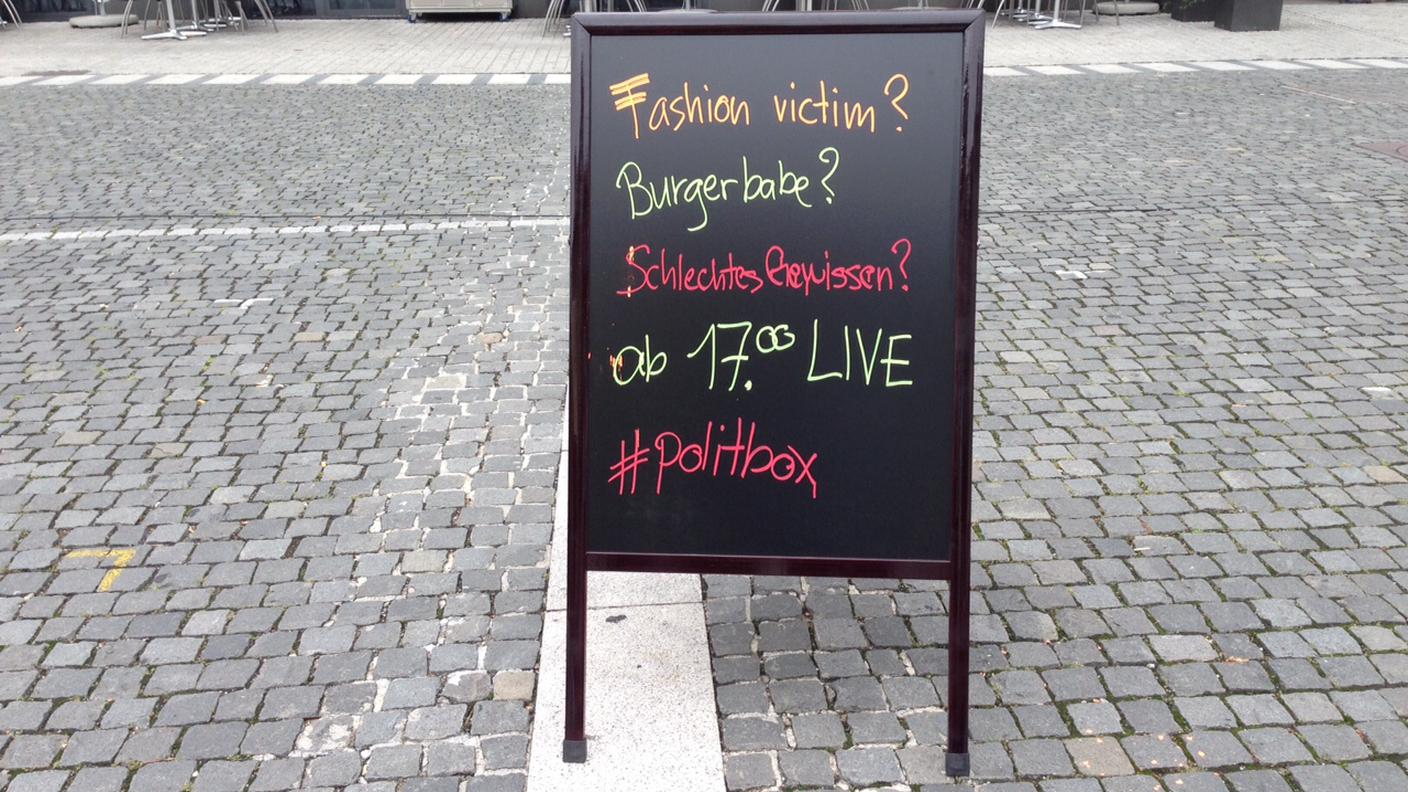 Fashion victim?
Burgerbabe?
Schlechtes Gewissen?
ab 17.00 LIVE
#politbox